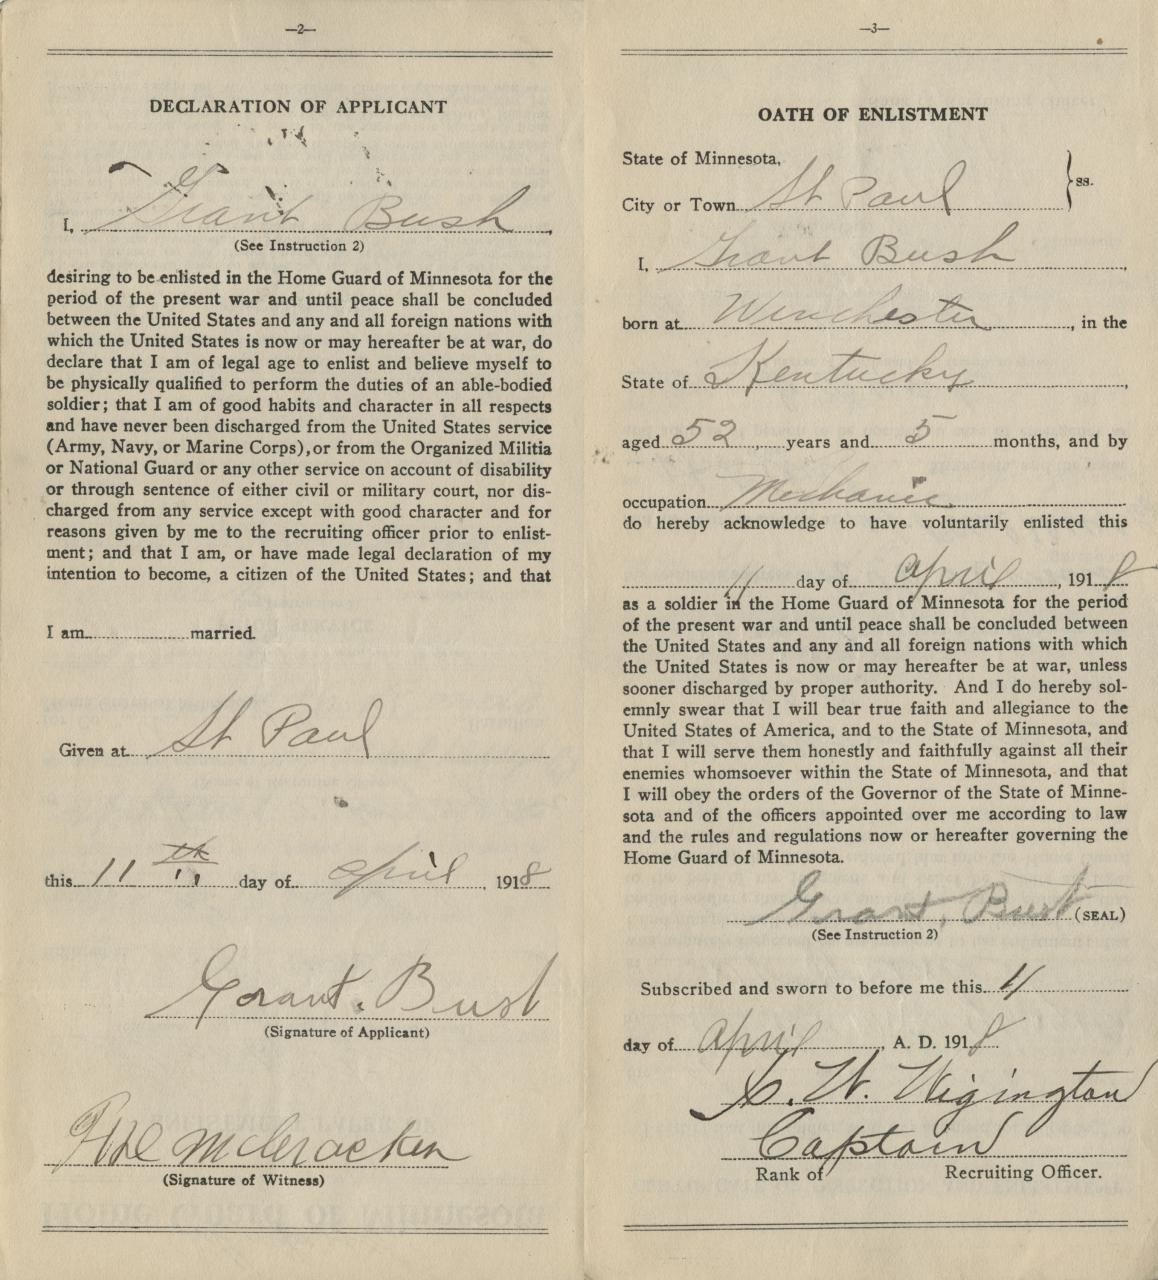 —2—
DECLARATION OF APPLICANT
I, Grant Bush,
(See Instruction 2)
desiring to be enlisted in the Home Guard of Minnesota for the
period of the present war and until peace shall be concluded
between the United States and any and all foreign nations with
which the United States is now or may hereafter be at war, do
declare that I am of legal age to enlist and believe myself to
be physically qualified to perform the duties of an able-bodied
soldier; that I am of good habits and character in all respects
and have never been discharged from the United States service
(Army, Navy, or Marine Corps), or from the Organized Militia
or National Guard or any other service on account of disability
or through sentence of either civil or military court, nor dis-
charged from any service except with good character and for
reasons given by me to the recruiting officer prior to enlist-
ment; and that I am, or have made legal declaration of my
intention to become, a citizen of the United States; and that
I am..................married.
Given at St Paul
this 11th day of april, 1918
Grant. Bush
(Signature of Applicant)
McCracken
(Signature of Witness)
—3—
OATH OF ENLISTMENT
State of Minnesota,
ss.
City or Town St Paul
I, Grant Bush,
born at Winchester, in the
State of Kentucky,
aged 52 years and 5 months, and by
occupation Mechanic
do hereby acknowledge to have voluntarily enlisted this
11 day of april, 1918
as a soldier in the Home Guard of Minnesota for the period
of the present war and until peace shall be concluded between
the United States and any and all foreign nations with which
the United States is now or may hereafter be at war, unless
sooner discharged by proper authority. And I do hereby sol-
emnly swear that I will bear true faith and allegiance to the
United States of America, and to the State of Minnesota, and
that I will serve them honestly and faithfully against all their
enemies whomsoever within the State of Minnesota, and that
I will obey the orders of the Governor of the State of Minne-
sota and of the officers appointed over me according to law
and the rules and regulations now or hereafter governing the
Home Guard of Minnesota.
Grant, Bush (SEAL)
(See Instruction 2)
Subscribed and sworn to before me this 11
day of april, A. D. 1918
C. W. Wigington
Captain
Rank of Recruiting Officer.